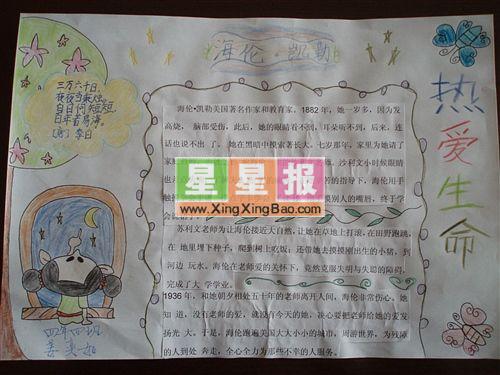 海伦·凯勒
三万六千日
夜夜当秉烛
百年苦易满。
李白
热爱生命
海伦•凯勒美国著名作家和教育家，1882年，她一岁多，因为发
高烧，脑部受伤，此后，她的眼睛看不到，耳朵听不到，后来，连
话也说不出了。她在黑暗中摸索着长大。七岁那年，家里为她请了
沙利文小时候眼睛
的指导下，海伦用手
摸别人的嘴唇，终于学
星星报
www.XingXingBao.com
苏利文老师为让海伦接近大自然，让她在草地上打滚，在田野跑跳，
在地里埋下种子，爬到树上吃饭；还带她去摸摸刚出生的小猪，到
河边玩水。海伦在老师爱的关怀下，竟然克服失明与失聪的障碍，
完成了大学学业。
1936年，和她朝夕相处五十年的老师离开人间，海伦非常伤心。她
知道，没有老师的爱，就没有今天的她，决心要把老师给她的爱发
扬光大。于是，海伦跑遍美国大大小小的城市，周游世界，为残障
的人到处奔走，全心全力为那些不幸的人服务。
四年四班